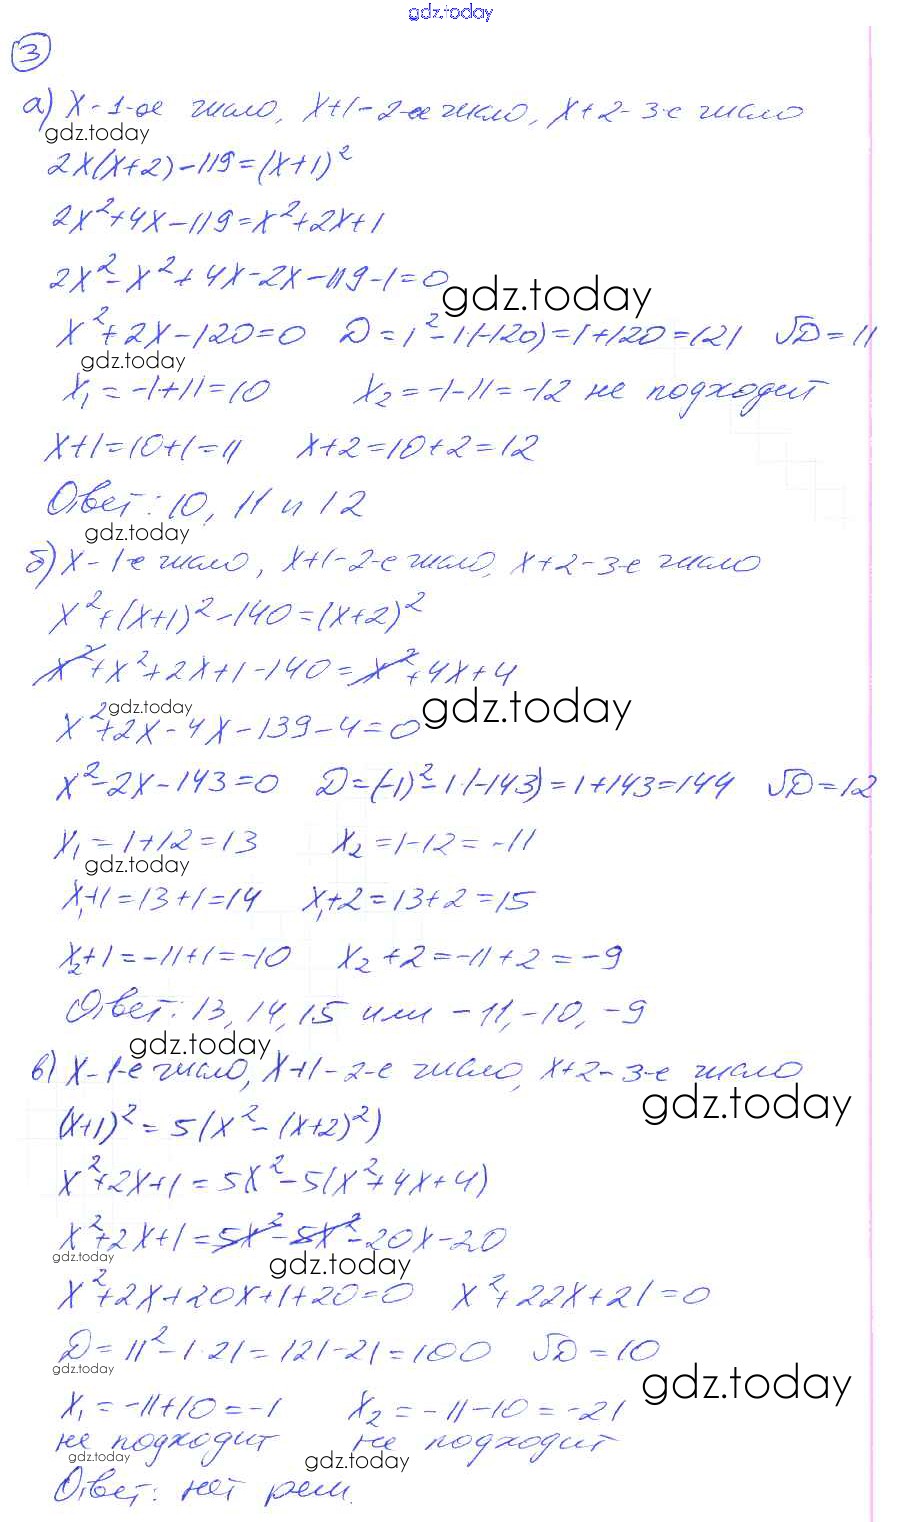 gdz.today
3
а) x - 1-ое число, x+1 - 2-ое число, x+2 - 3-е число
gdz.today
2x(x+2)-119=(x+1)²
2x²+4x-119=x²+2x+1
2x²-x²+4x-2x-119-1=0
gdz.today
x²+2x-120=0 D=1²-1·(-120)=1+120=121 √D=11
gdz.today
x₁=-1+11=10 x₂=-1-11=-12 не подходит
x+1=10+1=11 x+2=10+2=12
Ответ: 10, 11 и 12
gdz.today
б) x - 1-е число, x+1 - 2-е число, x+2 - 3-е число
x²+(x+1)²-140=(x+2)²
x²+x²+2x+1-140=x²+4x+4
gdz.today gdz.today
x²+2x-4x-139-4=0
x²-2x-143=0 D=(-1)²-1·(-143)=1+143=144 √D=12
x₁=1+12=13 x₂=1-12=-11
gdz.today
x₁+1=13+1=14 x₁+2=13+2=15
x₂+1=-11+1=-10 x₂+2=-11+2=-9
Ответ: 13, 14, 15 или -11, -10, -9
gdz.today
в) x - 1-е число, x+1 - 2-е число, x+2 - 3-е число
gdz.today
(x+1)²=5(x²-(x+2)²)
x²+2x+1=5x²-5(x²+4x+4)
x²+2x+1=5x²-5x²-20x-20
gdz.today gdz.today
x²+2x+20x+1+20=0 x²+22x+21=0
D=11²-1·21=121-21=100 √D=10
gdz.today gdz.today
x₁=-11+10=-1 x₂=-11-10=-21
не подходит не подходит
gdz.today gdz.today
Ответ: нет реш.